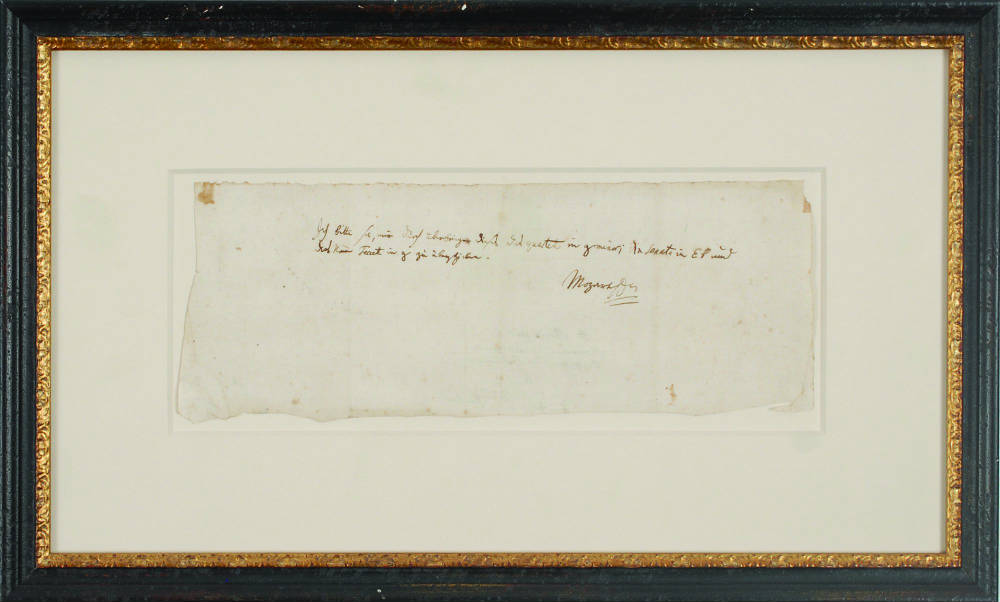 Ich bitte Sie, mir durch überbringer dieß das quartett in g minor; die Sonate in Eb und
das Neue Terzett in g zu überschicken.
Mozart